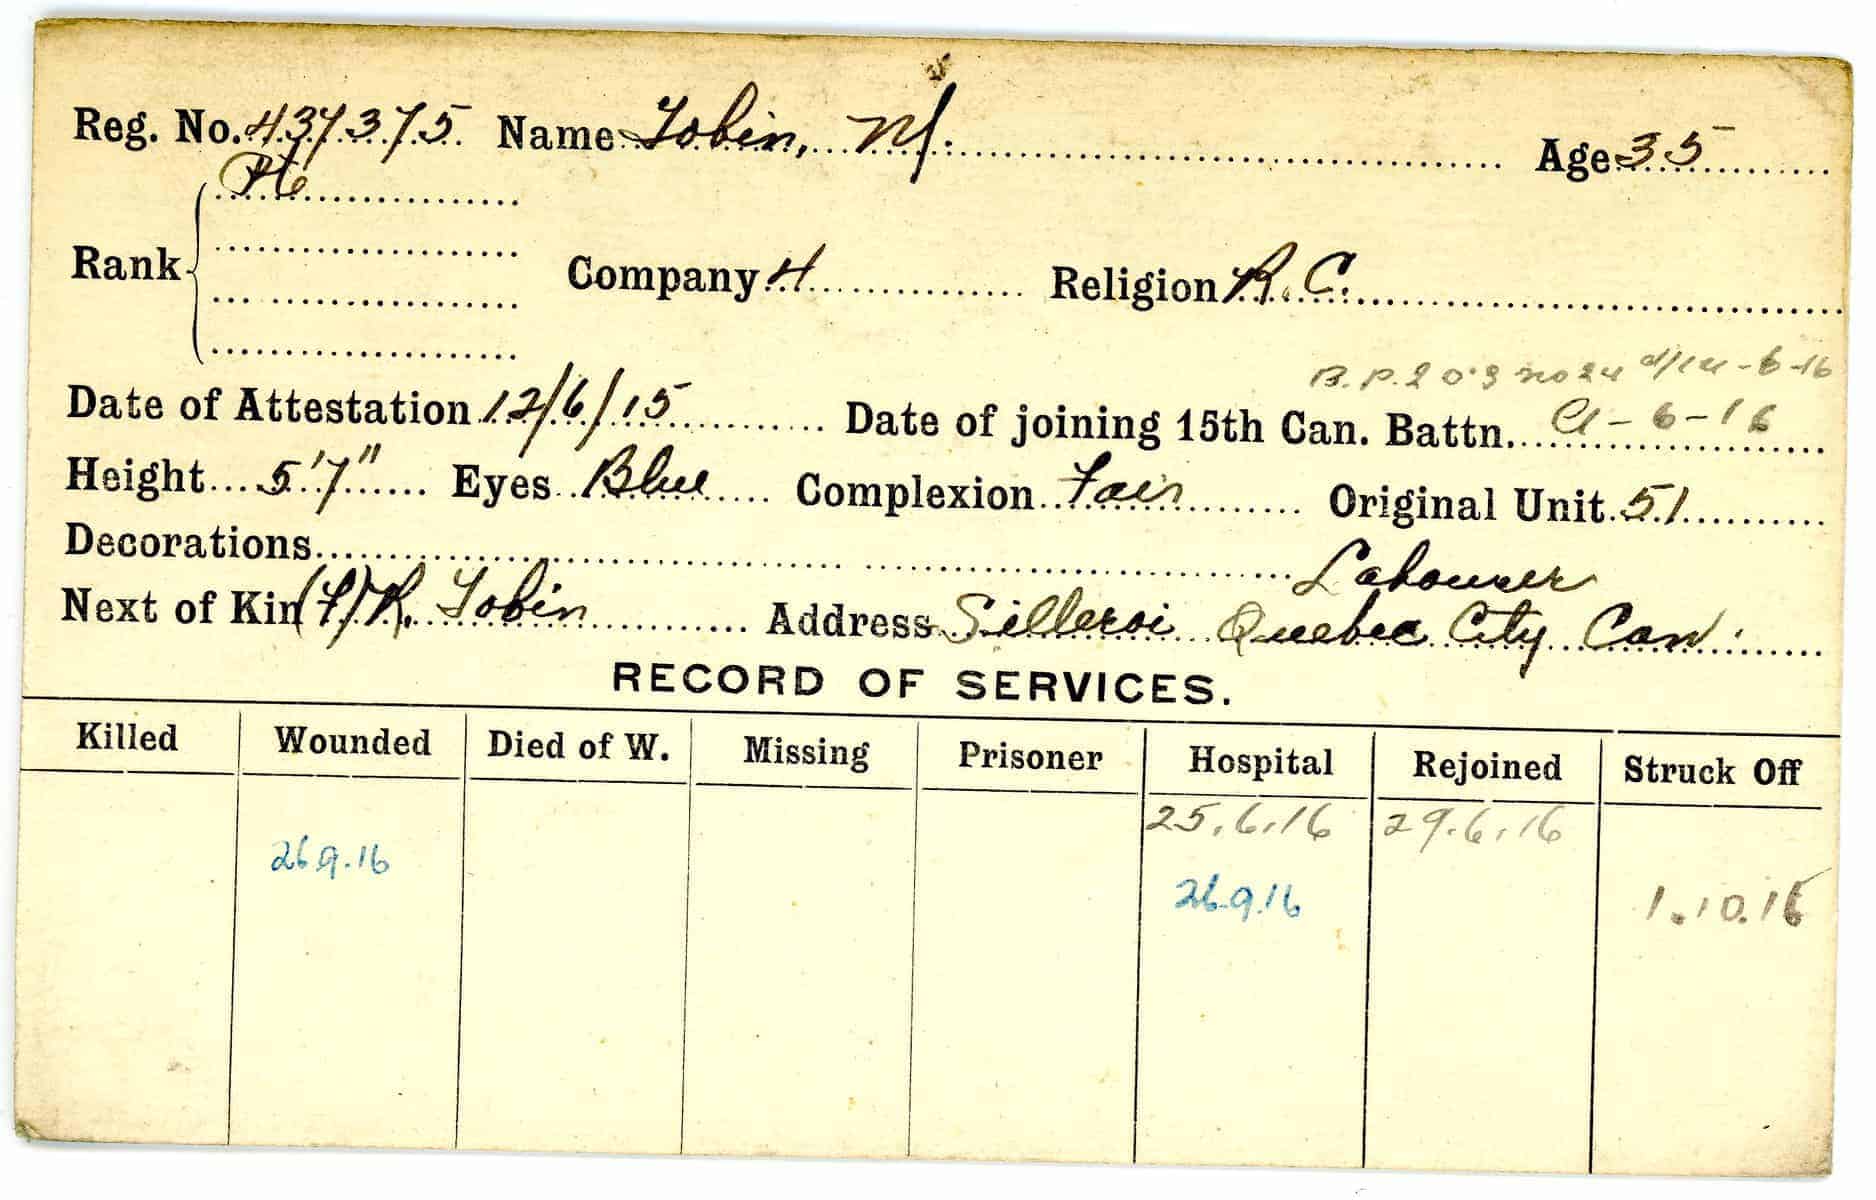 Reg. No. 437375 Name Tobin, M. Age 35
Pte
Rank Company 4 Religion R. C.
B. P. 2 O. 3 no 24 d/14-6-16
Date of Attestation 12/6/15 Date of joining 15th Can. Battn. -6-16
Height 5'7" Eyes Blue Complexion Fair Original Unit 51
Decorations Labourer
Next of Kin (F) R. Tobin Address Silleroi Quebec City Can.
RECORD OF SERVICES.
Killed Wounded Died of W. Missing Prisoner Hospital Rejoined Struck Off
25.6.16 29.6.16
26.9.16 26.9.16 1.10.16